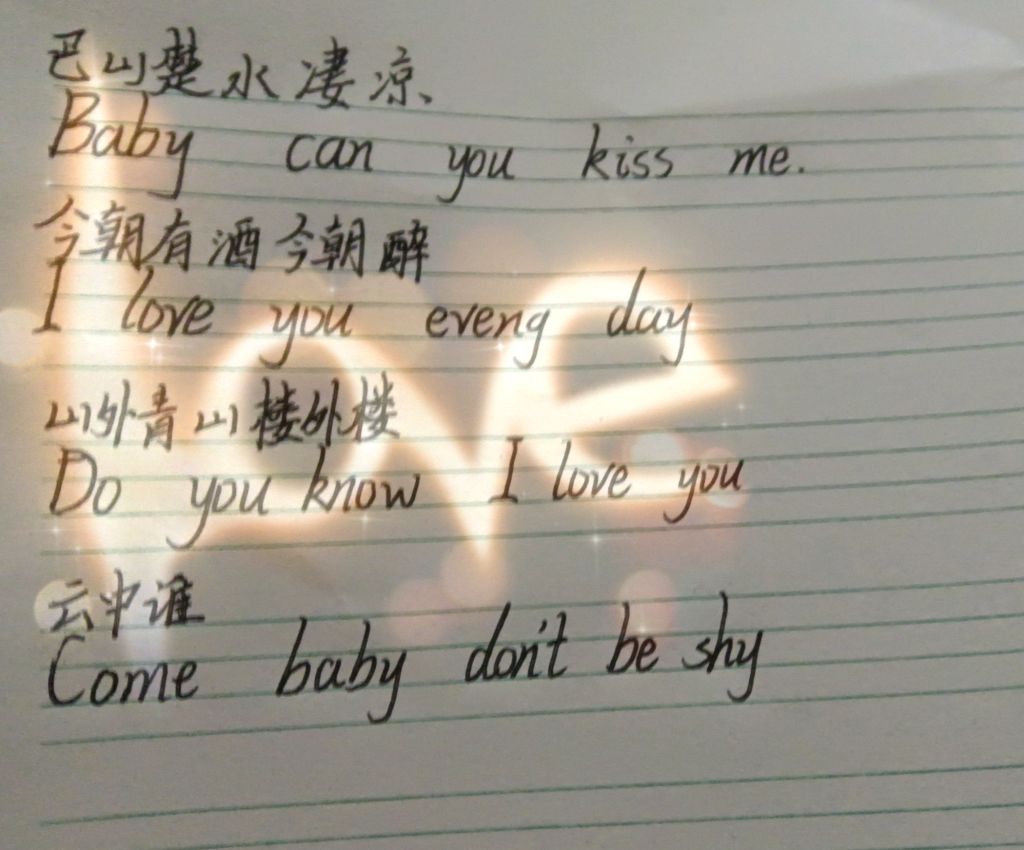 巴山楚水凄凉
Baby can you kiss me.
今朝有酒今朝醉
I love you eveng day
山外青山楼外楼
Do you know I love you
云中谁
Come baby don't be shy